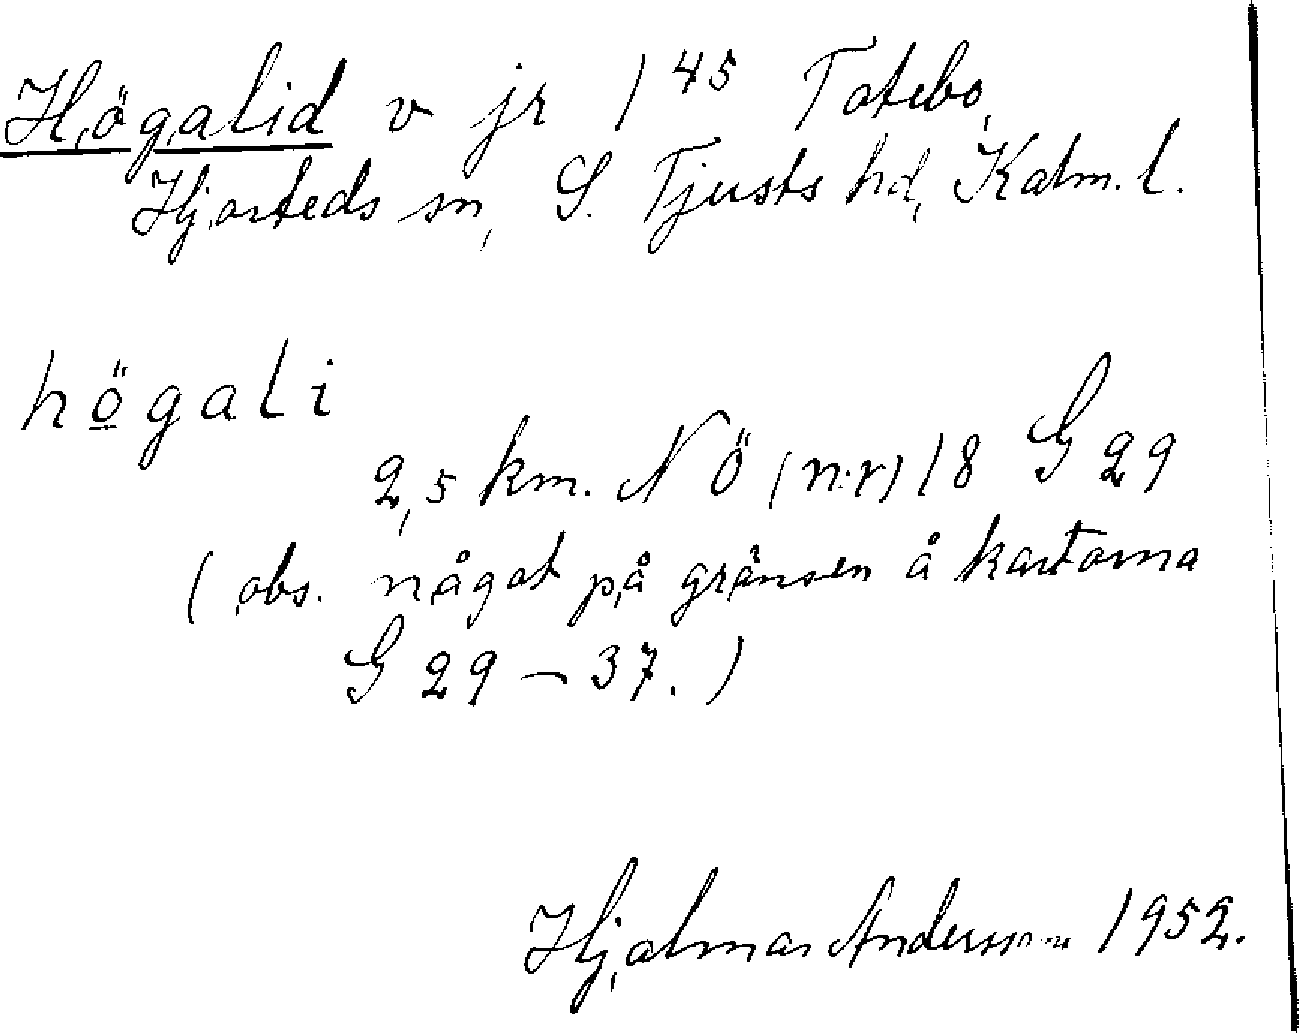 Högalid v jr 1 45 Totebo,
Hjorteds sn, S. Tjusts hd, Kalm. l.
högali
2,5 km. N Ö (n:r) 18 G 29
(obs. något på gränsen å kartorna
G 29 – 37.)
Hjalmar Andersson 1952.